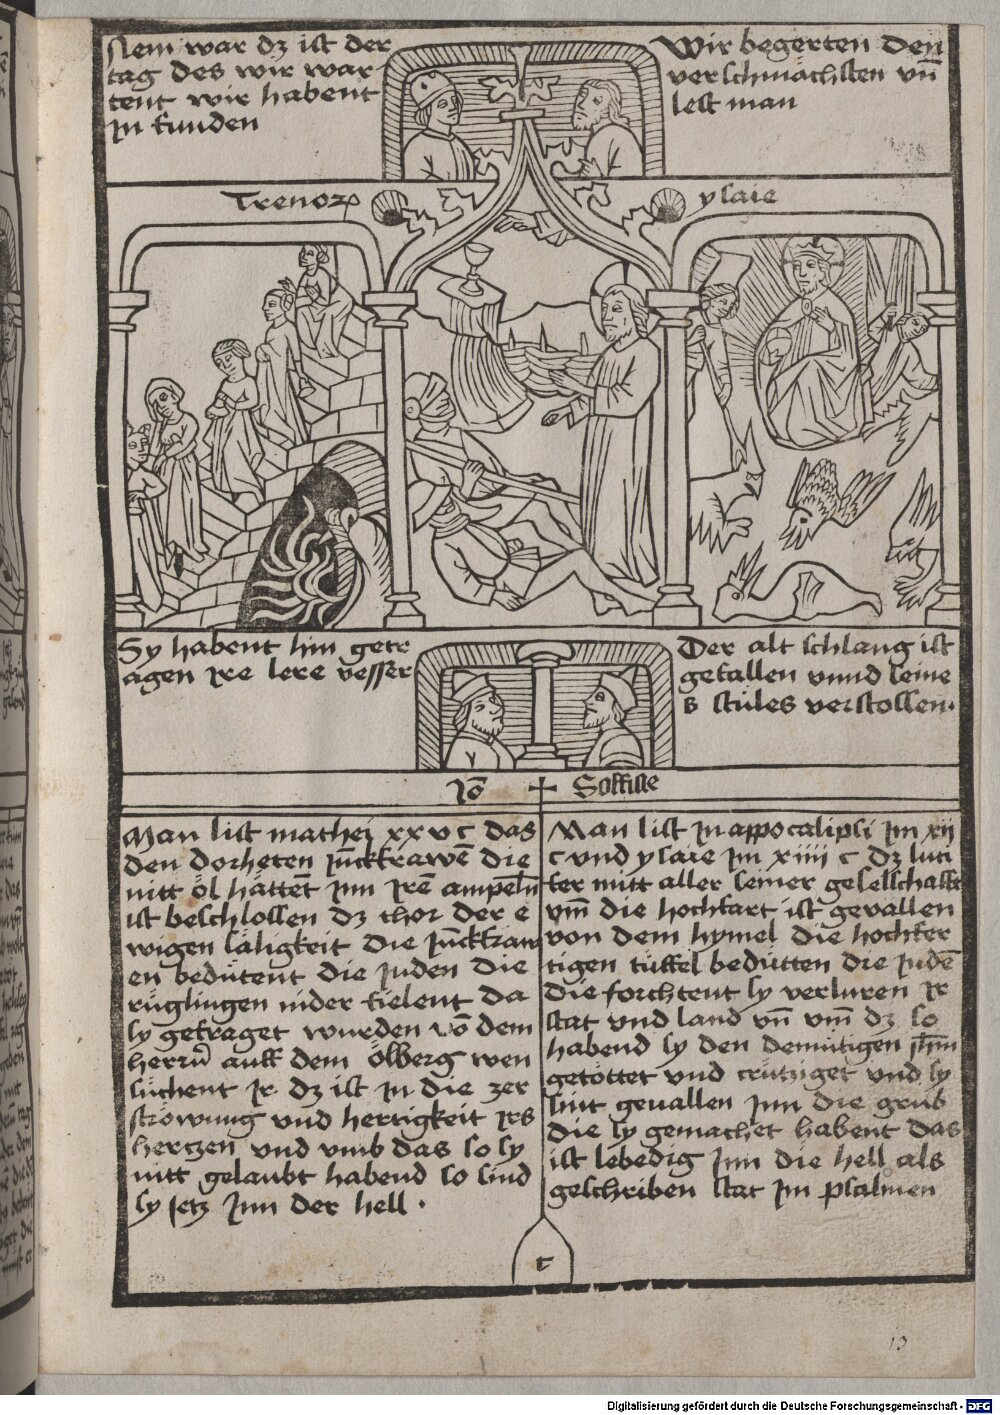 slem war dz ist der
tag des wir war
tent wir habent
jn funden
Wir begerten den
verschmächsten vn̄
lest man
Trenoꝝ
ysaie
Sy habent hin getr
agen jre lere vesser
Der alt schlang ist
gefallen vnnd seine
s stůles verstossen.
Jō
Soffiste
Man list mathei xxv c das
den dorheten jūckfrawē die
nitt öl hättēt jnn jrē ampeln
ist beschlossen dz thor der e
wigen säligkeit die jūckfraw
en bedütent die juden die
rüglingen nider fielent da
sy gefraget wurden vō dem
herrn̄ auff dem ölberg wen
süchent jr dz ist in die zer
ströwung vnd hertigkeit jrs
hertzen vnd vmb das so sy
nitt gelaubt habend so sind
sy jetz jnn der hell .
Man list jn appocalipsi jm xij
c vnd ysaie jm xiiii c dz luci
fer mitt aller seiner gesellschafft
vm̄ die hochfart ist gevallen
von dem hymel die hochfer
tigen tüffel bedütten die judē
die forchtent sy verluren jr
stat vnd land vn̄ vm̄ dz so
habend sy den demütigen jhm̄
getöttet vnd crütziget vnd sy
sint gevallen jnn die grůb
die sy gemachet habent das
ist lebedig jnn die hell als
geschriben stat jm psalmen
c
13
Digitalisierung gefördert durch die Deutsche Forschungsgemeinschaft - DFG